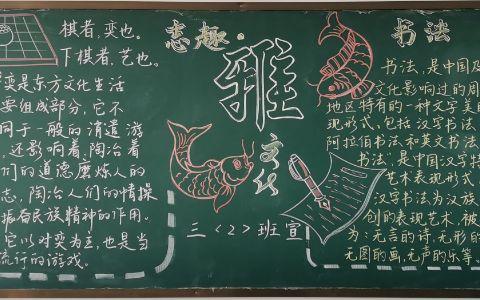 棋者,奕也。
下棋者,艺也。
奕是东方文化生活
要组成部分,它不
同于一般的消遣游
,还影响着,陶冶着
们的道德磨炼人的
志,陶冶人们的情操
振奋民族精神的作用。
它以对奕为主,也是当
流行的游戏。
志趣·
雅
文化
三〈2〉班宣
书法
书法,是中国及
文化影响过的周
地区特有的一种文字美的
现形式,包括汉字书法
阿拉伯书法和英文书法
书法,是中国汉字特
艺术表现形式
汉字书法为汉族
创的表现艺术,被
为:无言的诗,无形的
无图的画,无声的乐等。